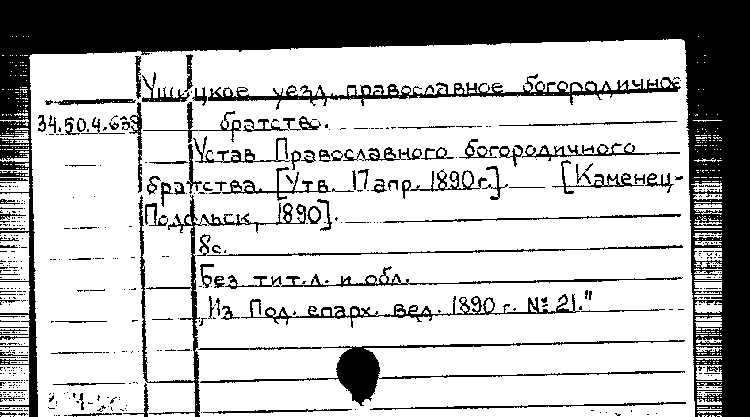 Ушицкое уезд. православное богородичное
34.50.4.638 братство.
Устав Православного богородичного
братства. [Утв. 17 апр. 1890г.]. [Каменец-
Подольск, 1890].
8с.
Без тит.л. и обл.
„Из Под. епарх. вед. 1890 г. № 21."